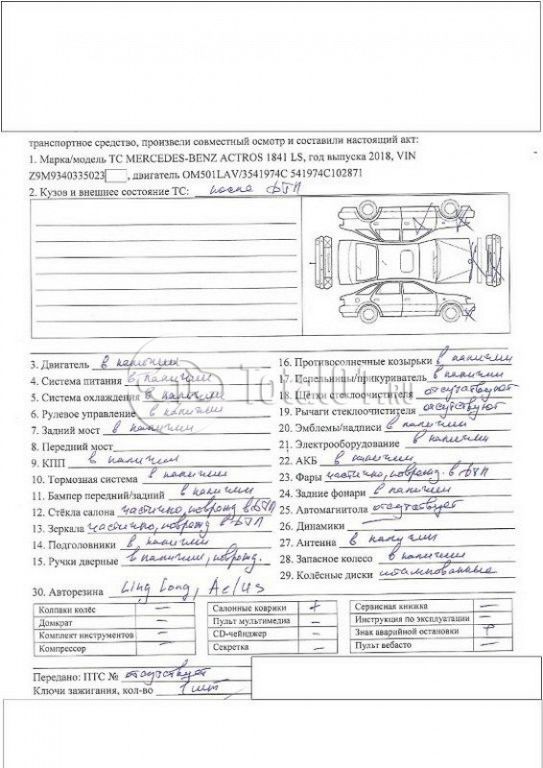 транспортное средство, произвели совместный осмотр и составили настоящий акт:
1. Марка/модель ТС MERCEDES-BENZ ACTROS 1841 LS, год выпуска 2018, VIN
Z9M9340335023 , двигатель OM501LAV/3541974C 541974C102871
2. Кузов и внешнее состояние ТС: после ДТП
3. Двигатель в наличии
4. Система питания в наличии
5. Система охлаждения в наличии
6. Рулевое управление в наличии
7. Задний мост в наличии
8. Передний мост
9. КПП в наличии
10. Тормозная система в наличии
11. Бампер передний/задний в наличии
12. Стёкла салона частично, поврежд в ДТП
13. Зеркала частично, поврежд в ДТП
14. Подголовники в наличии
15. Ручки дверные в наличии, поврежд.
16. Противосолнечные козырьки в наличии
17. Пепельницы/прикуриватель в наличии
18. Щётки стеклоочистителя отсутствуют
19. Рычаги стеклоочистителя отсутствуют
20. Эмблемы/надписи в наличии
21. Электрооборудование в наличии
22. АКБ в наличии
23. Фары частично, поврежд. в ДТП
24. Задние фонари в наличии
25. Автомагнитола отсутствует
26. Динамики –
27. Антенна в наличии
28. Запасное колесо в наличии
29. Колёсные диски штампованные
30. Авторезина Ling Long, Aelus
Колпаки колёс –
Домкрат –
Комплект инструментов –
Компрессор –
Салонные коврики +
Пульт мультимедиа –
CD-чейнджер –
Секретка –
Сервисная книжка –
Инструкция по эксплуатации –
Знак аварийной остановки +
Пульт вебасто –
Передано: ПТС № отсутствует
Ключи зажигания, кол-во 1 шт